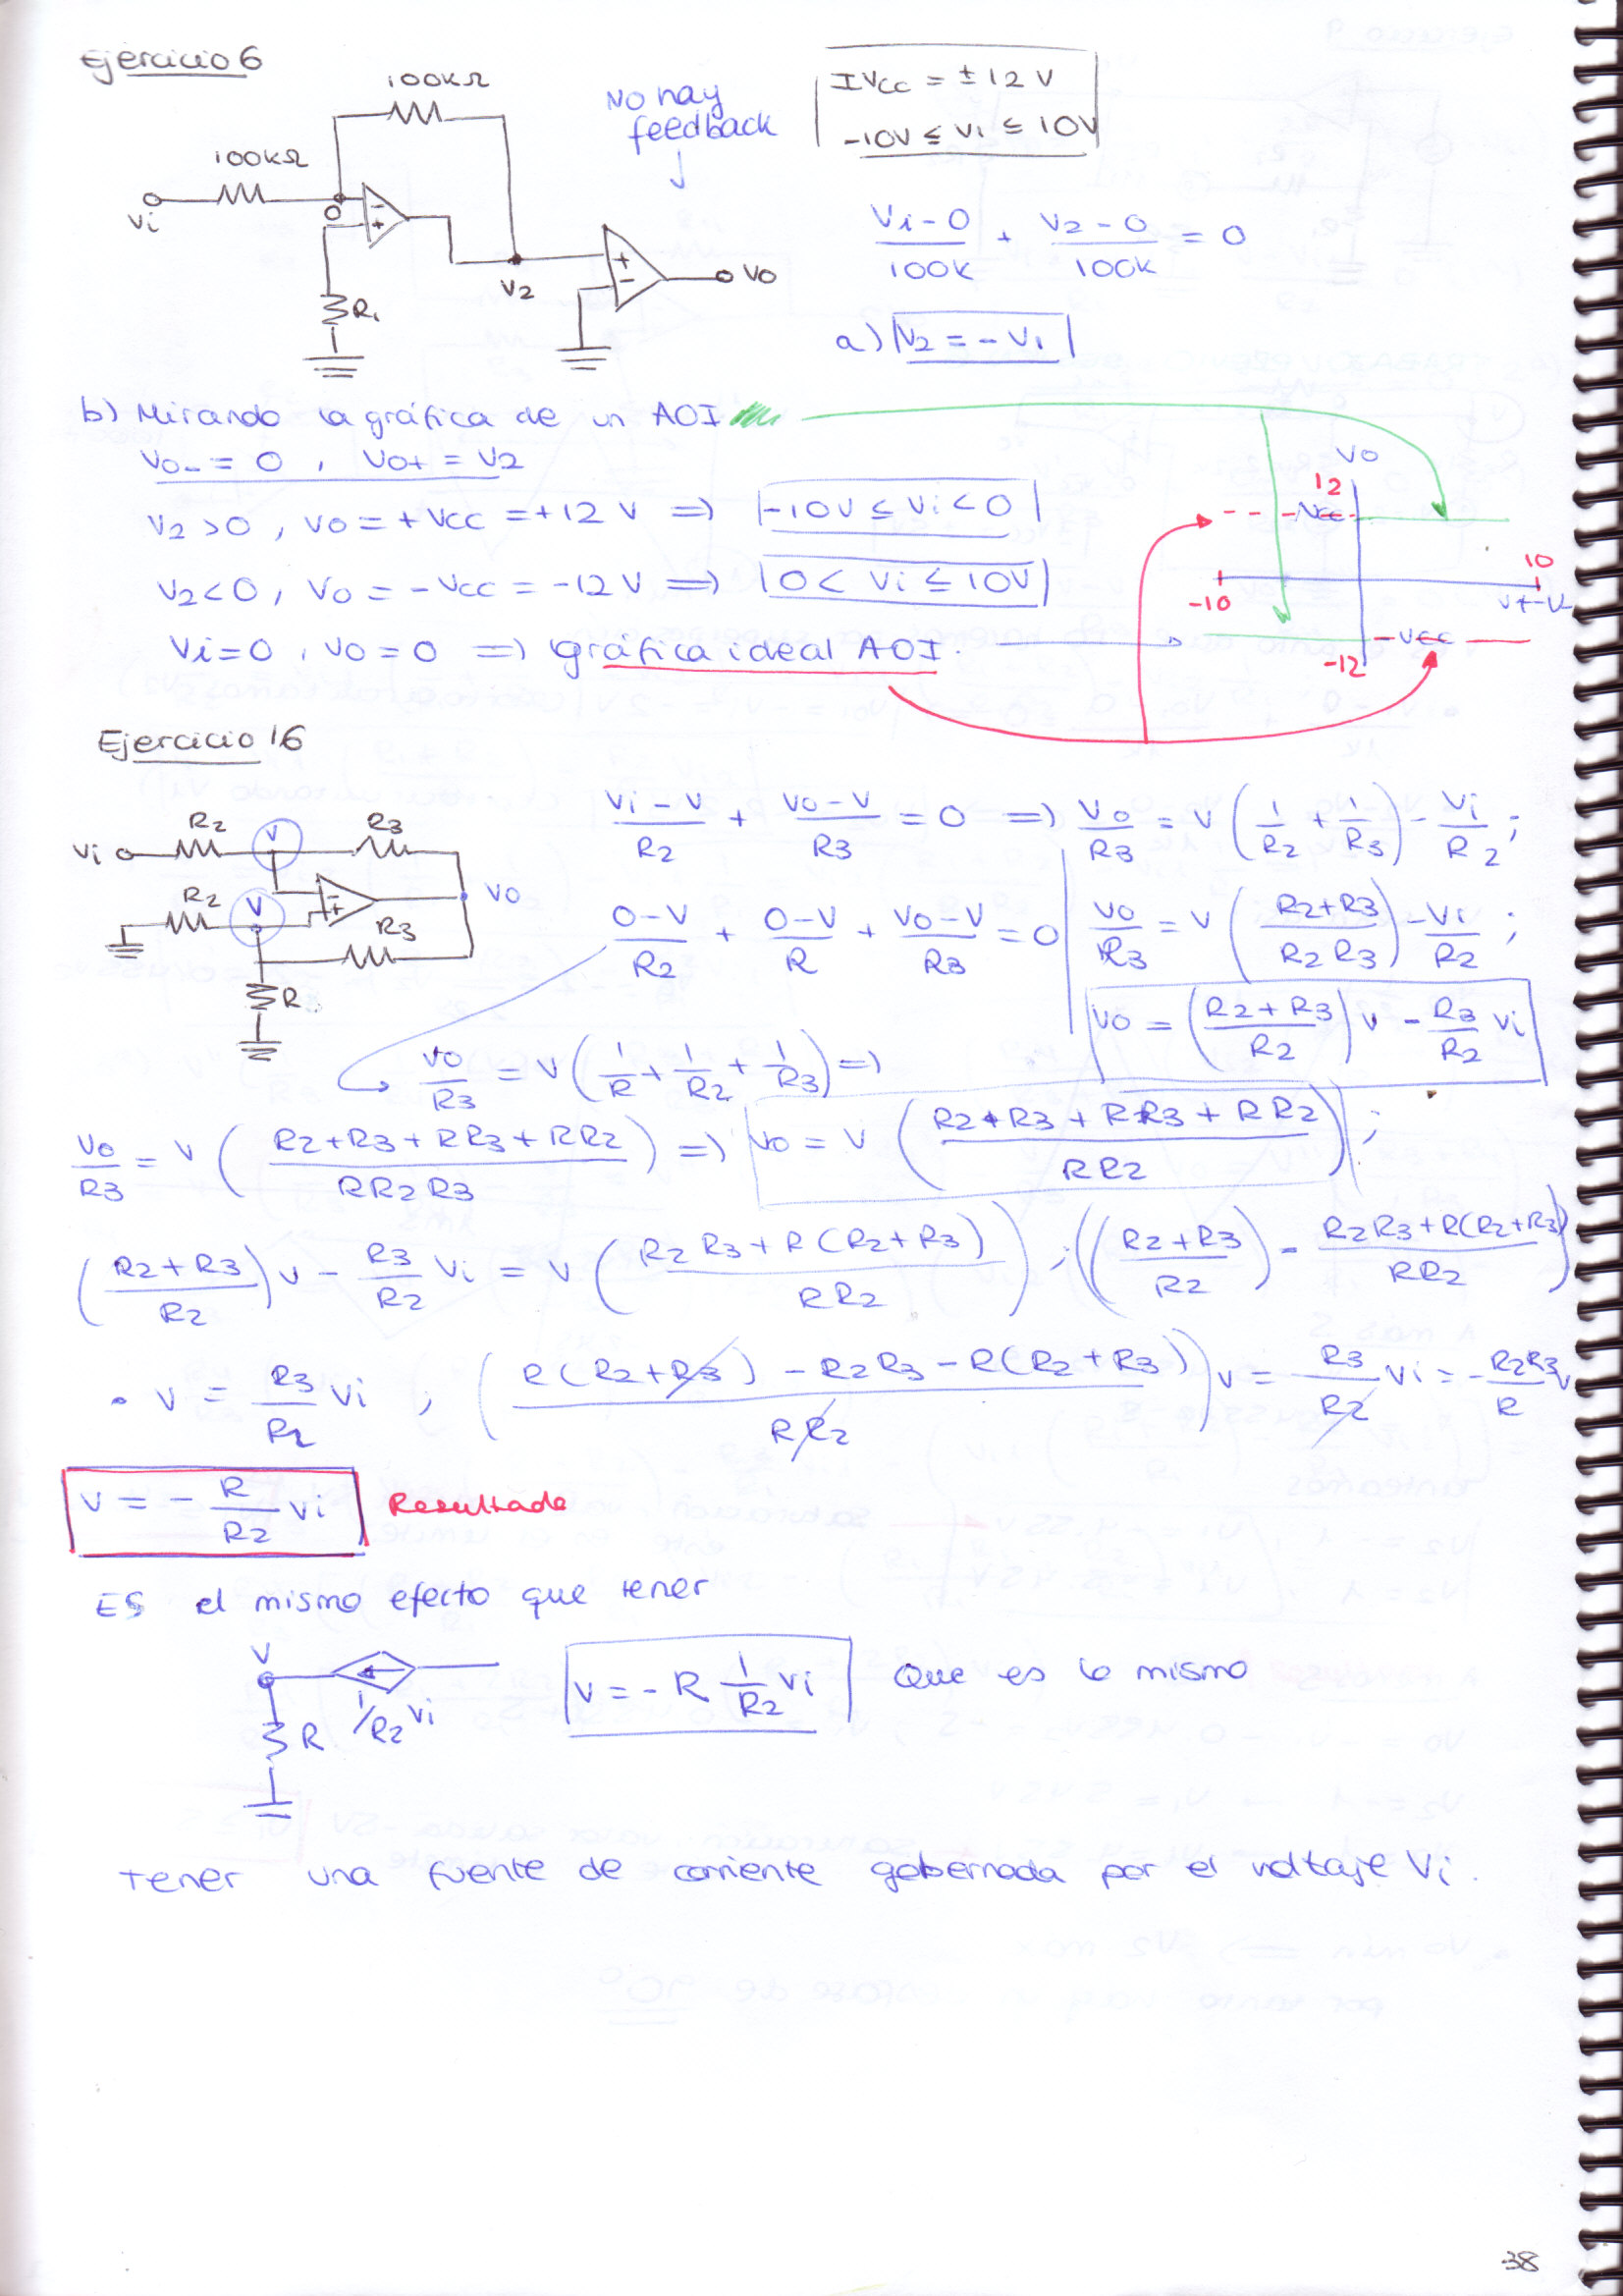 Ejercicio 6
100kΩ
100kΩ
Vi
0
- +
R1
V2
+ -
Vo
No hay
feedback
IVcc = ±12 V
-10V ≤ Vi ≤ 10V
(Vi-0)/100k + (V2-0)/100k = 0
a) V2 = -Vi
b) Mirando la gráfica de un AOI
Vo- = 0 , Vo+ = V2
V2>0 , Vo = +Vcc = +12 V => -10V ≤ Vi < 0
V2<0 , Vo = -Vcc = -12 V => 0 < Vi ≤ 10V
Vi=0 , Vo = 0 => gráfica ideal AOI.
Vo
12
Vcc
10
-10
V+-V-
-Vcc
-12
Ejercicio 16
Vi
R2
V
R3
R2
V
- +
Vo
R3
R
(Vi-V)/R2 + (Vo-V)/R3 = 0 => Vo/R3 = V (1/R2 + 1/R3) - Vi/R2 ;
(0-V)/R2 + (0-V)/R + (Vo-V)/R3 = 0
Vo/R3 = V ((R2+R3)/(R2 R3)) - Vi/R2 ;
Vo = ((R2+R3)/R2) V - (R3/R2) Vi
Vo/R3 = V (1/R + 1/R2 + 1/R3) =>
Vo/R3 = V ((R2+R3+RR3+RR2)/(RR2R3)) => Vo = V ((R2+R3+RR3+RR2)/(RR2)) ;
((R2+R3)/R2) V - (R3/R2) Vi = V ((R2R3+R(R2+R3))/(RR2)) ; (((R2+R3)/R2) - (R2R3+R(R2+R3))/(RR2))
· V = (R3/R2) Vi , ((R(R2+R3) - R2R3 - R(R2+R3))/(RR2)) V = (R3/R2) Vi = -(R2R3/R) V
V = - (R/R2) Vi Resultado
ES el mismo efecto que tener
V
R
1/R2 Vi
V = -R (1/R2) Vi Que es lo mismo
tener una fuente de corriente gobernada por el voltaje Vi.
38